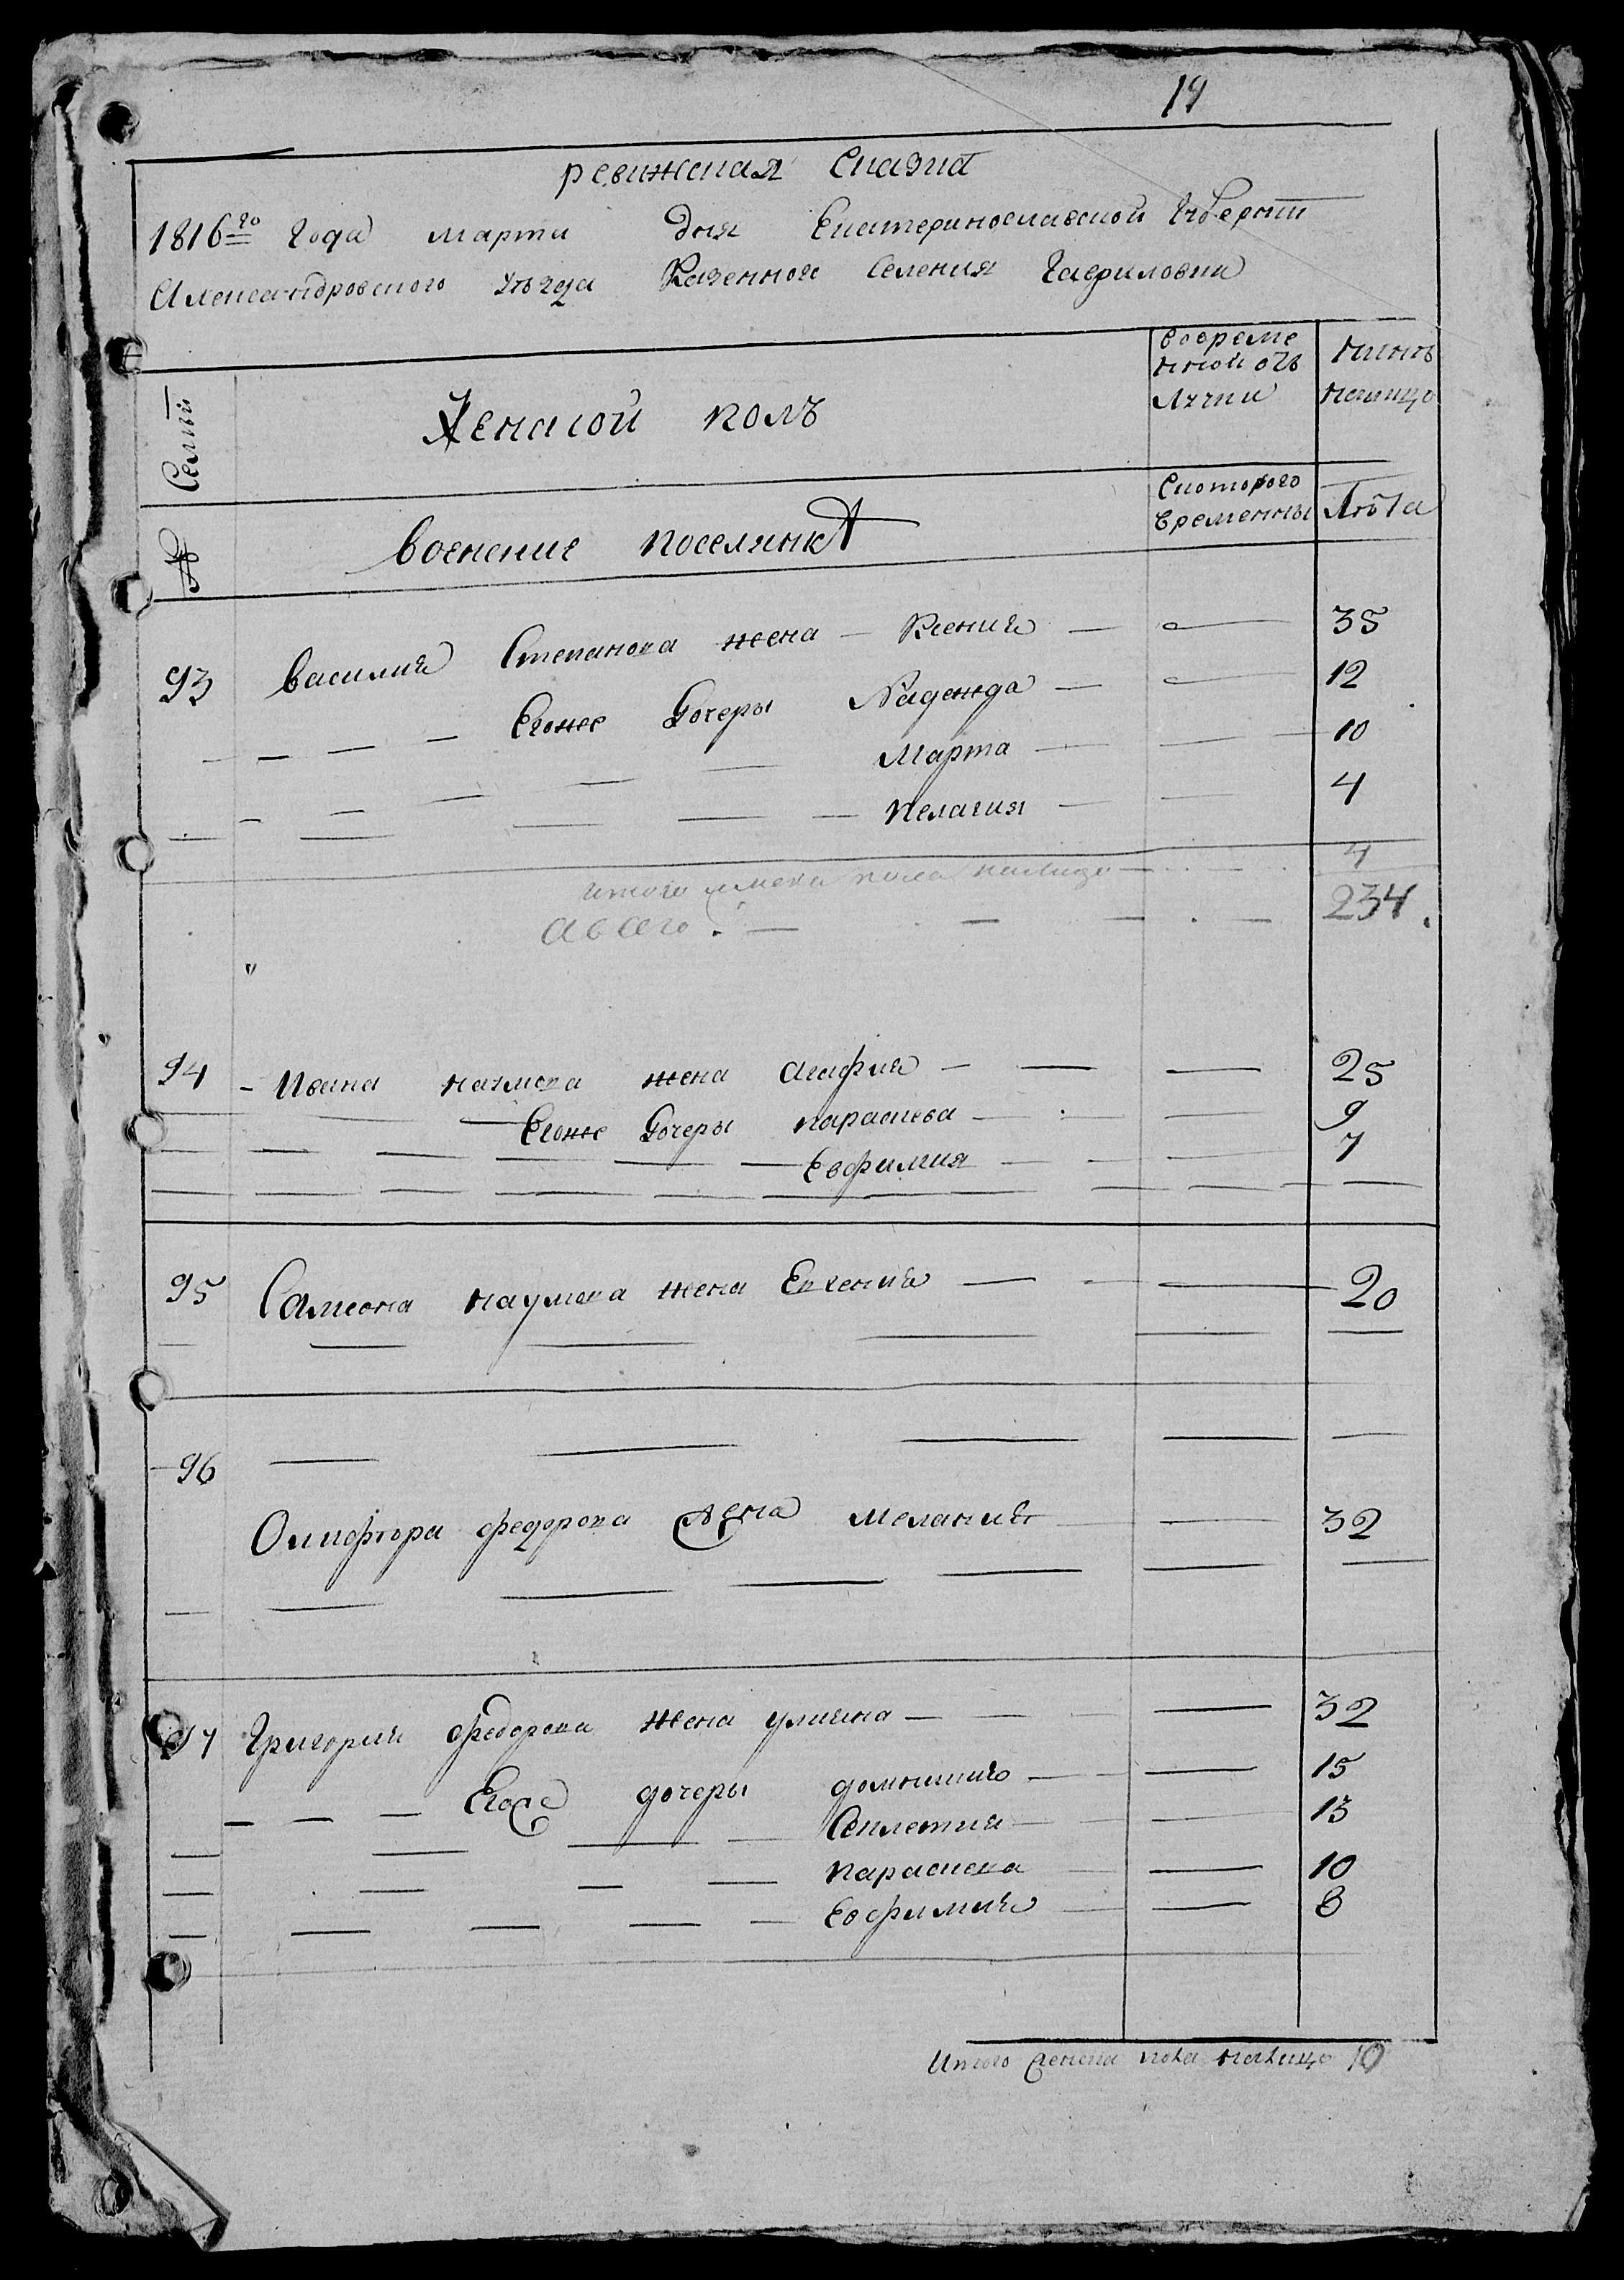 19
ревижская Сказка
1816го года марта дня Екатеринославской Губернии
Александровского уезда Казенной Селения Гавриловки
Семьи
Женской полъ
Вовреме
нной отъ
лучки
нынѣ
налицо
№
военские поселянки
Скоторого
временны
Лѣта
93 Василия Степанова жена — Ксения — — 35
— — — Егоже Дочеры Надежда — — 12
Марта — — 10
Пелагия — — 4
итого женска пола налицо — 4
а всего — — — — 234.
94 — Ивана наумова жена агафия — — — 25
Егоже Дочеры параскева — — 9
Евфимия — — 7
95 Самсона наумова жена Евгения — — — 20
96
Оникфора федорова жена мелания — — 32
97 Григория федорова жена улияна — — — 32
— — — Егоже дочеры домникия — — 15
Секлетия — — 13
параскева — — 10
Евфимия — — 8
Итого женска пола налицо 10